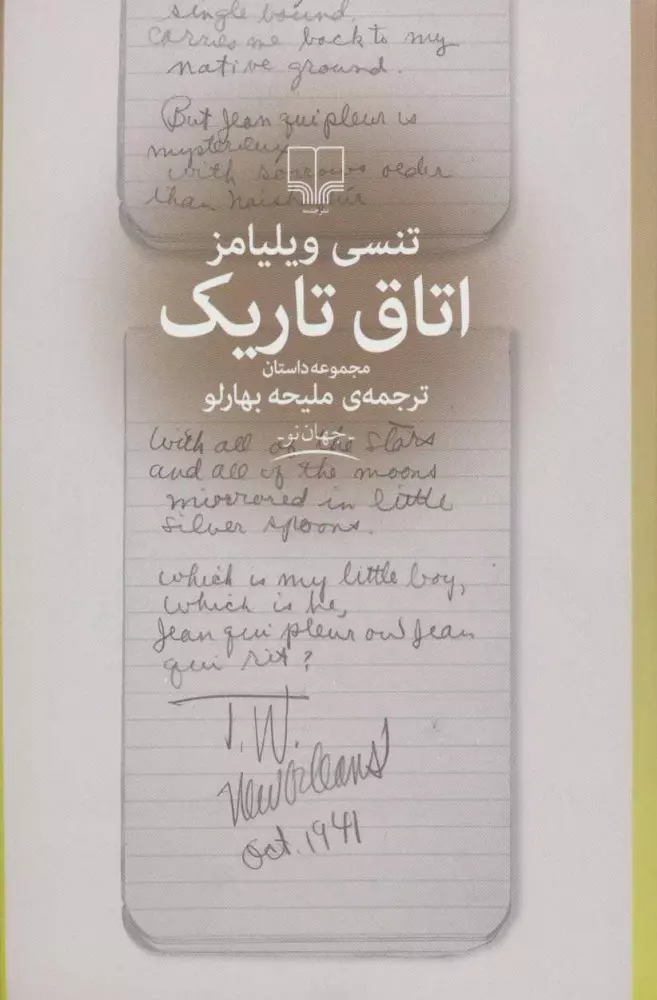 single bound,
carries me back to my
native ground.
But Jean qui pleur is
mysterieux
with sorrows older
than
نشرچشمه
تنسی ویلیامز
اتاق تاریک
مجموعه‌داستان
ترجمه‌ی ملیحه بهارلو
جهان‌نو
With all of the stars
and all of the moons
mirrored in little
silver spoons.
which is my little boy,
which is he,
Jean qui pleur ou Jean
qui rit?
T.W.
New Orleans
Oct. 1941